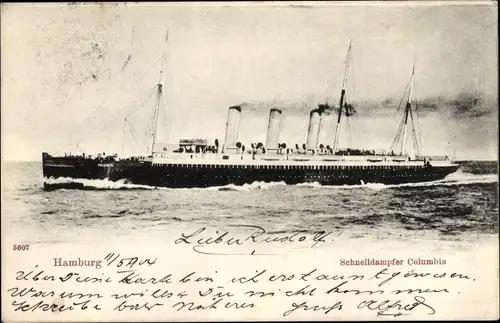 5607
Hamburg 11/5 904
Schnelldampfer Columbia
Lieber Rudolf!
Über Deine Karte bin ich erstaunt gewesen.
Warum willst Du nicht herkommen.
Schreibe bald näheres. Gruß Alfred